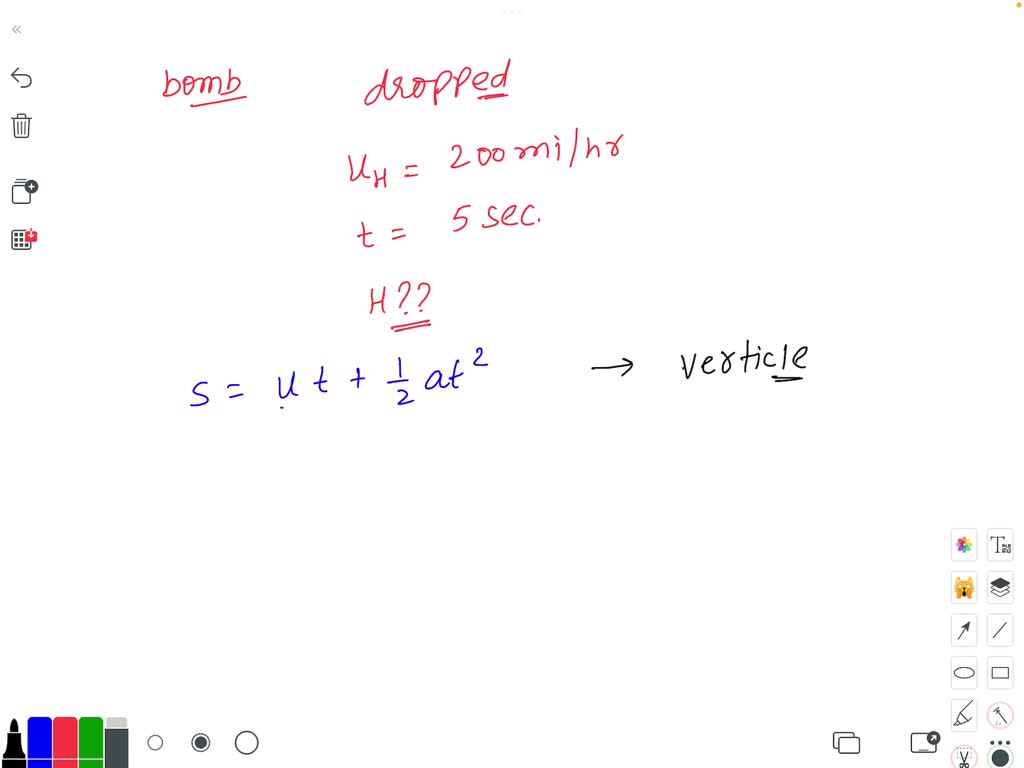 bomb dropped
u_H = 200 mi/hr
t = 5 sec.
H??
s = ut + 1/2 at² → verticle